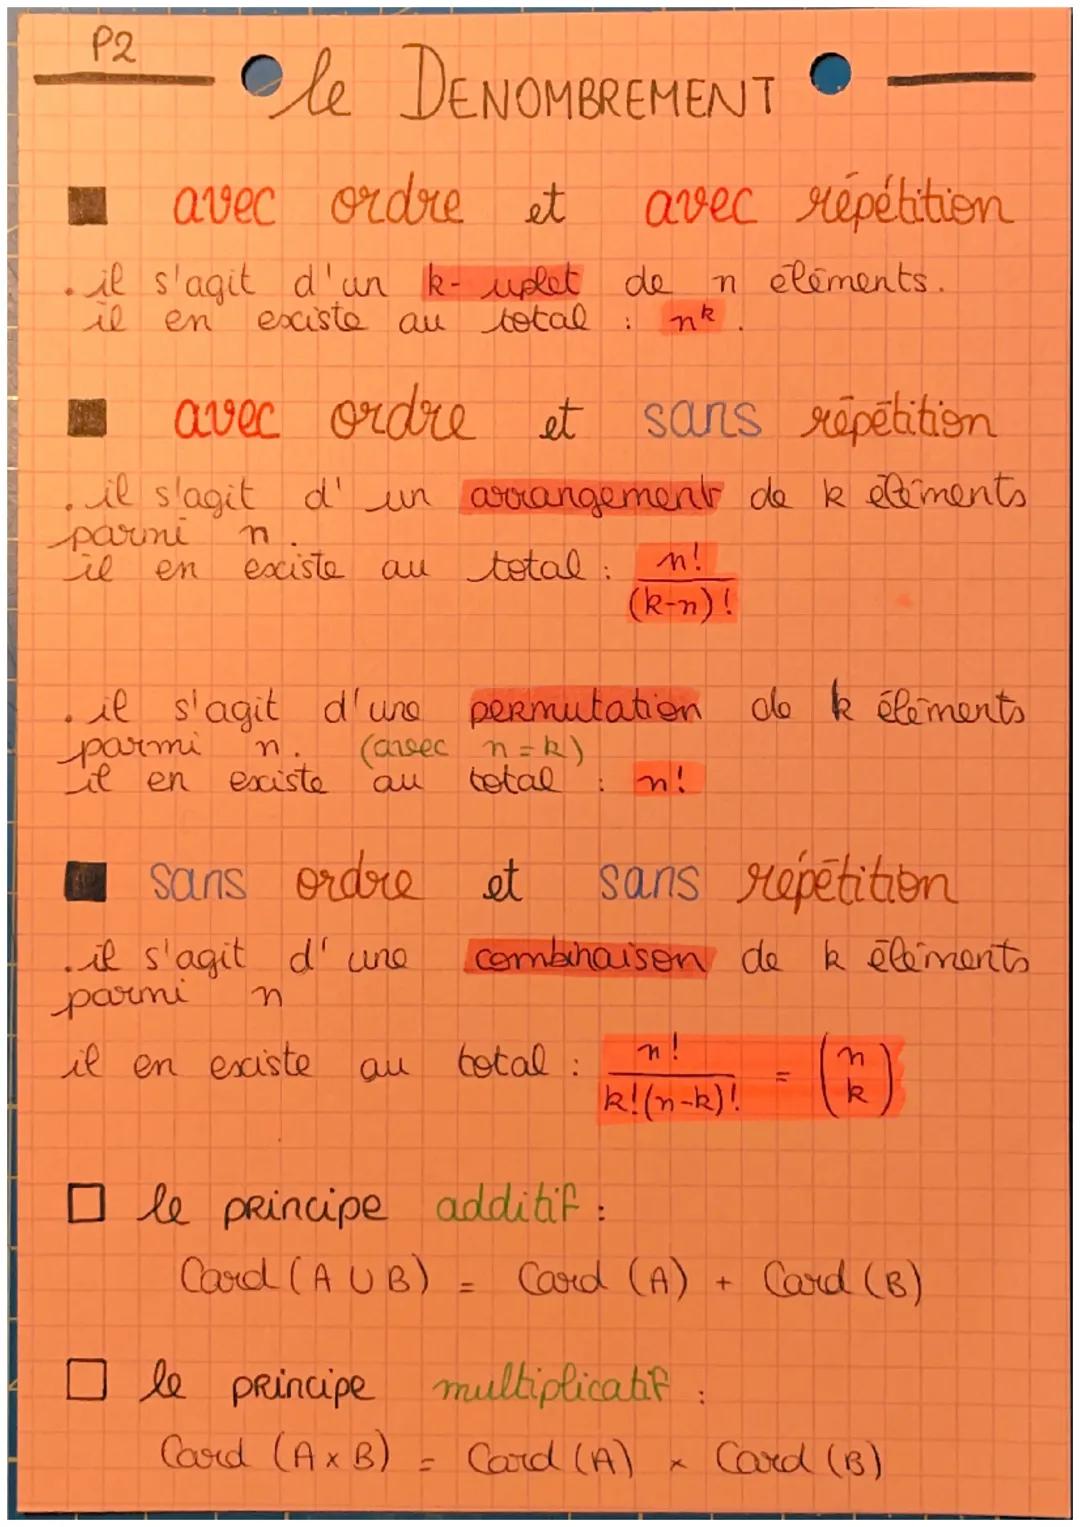 P2
le DENOMBREMENT
avec ordre et avec répétition
. il s'agit d'un k-uplet de n éléments.
il en existe au total : n^k.
avec ordre et sans répétition
. il s'agit d'un arrangement de k éléments
parmi n.
il en existe au total : n!
(k-n)!
. il s'agit d'une permutation de k éléments
parmi n. (avec n=k)
il en existe au total : n!
sans ordre et sans répétition
. il s'agit d'une combinaison de k éléments
parmi n
il en existe au total : n! / k!(n-k)! = (n k)
le principe additif :
Card (A ∪ B) = Card (A) + Card (B)
le principe multiplicatif :
Card (A × B) = Card (A) × Card (B)